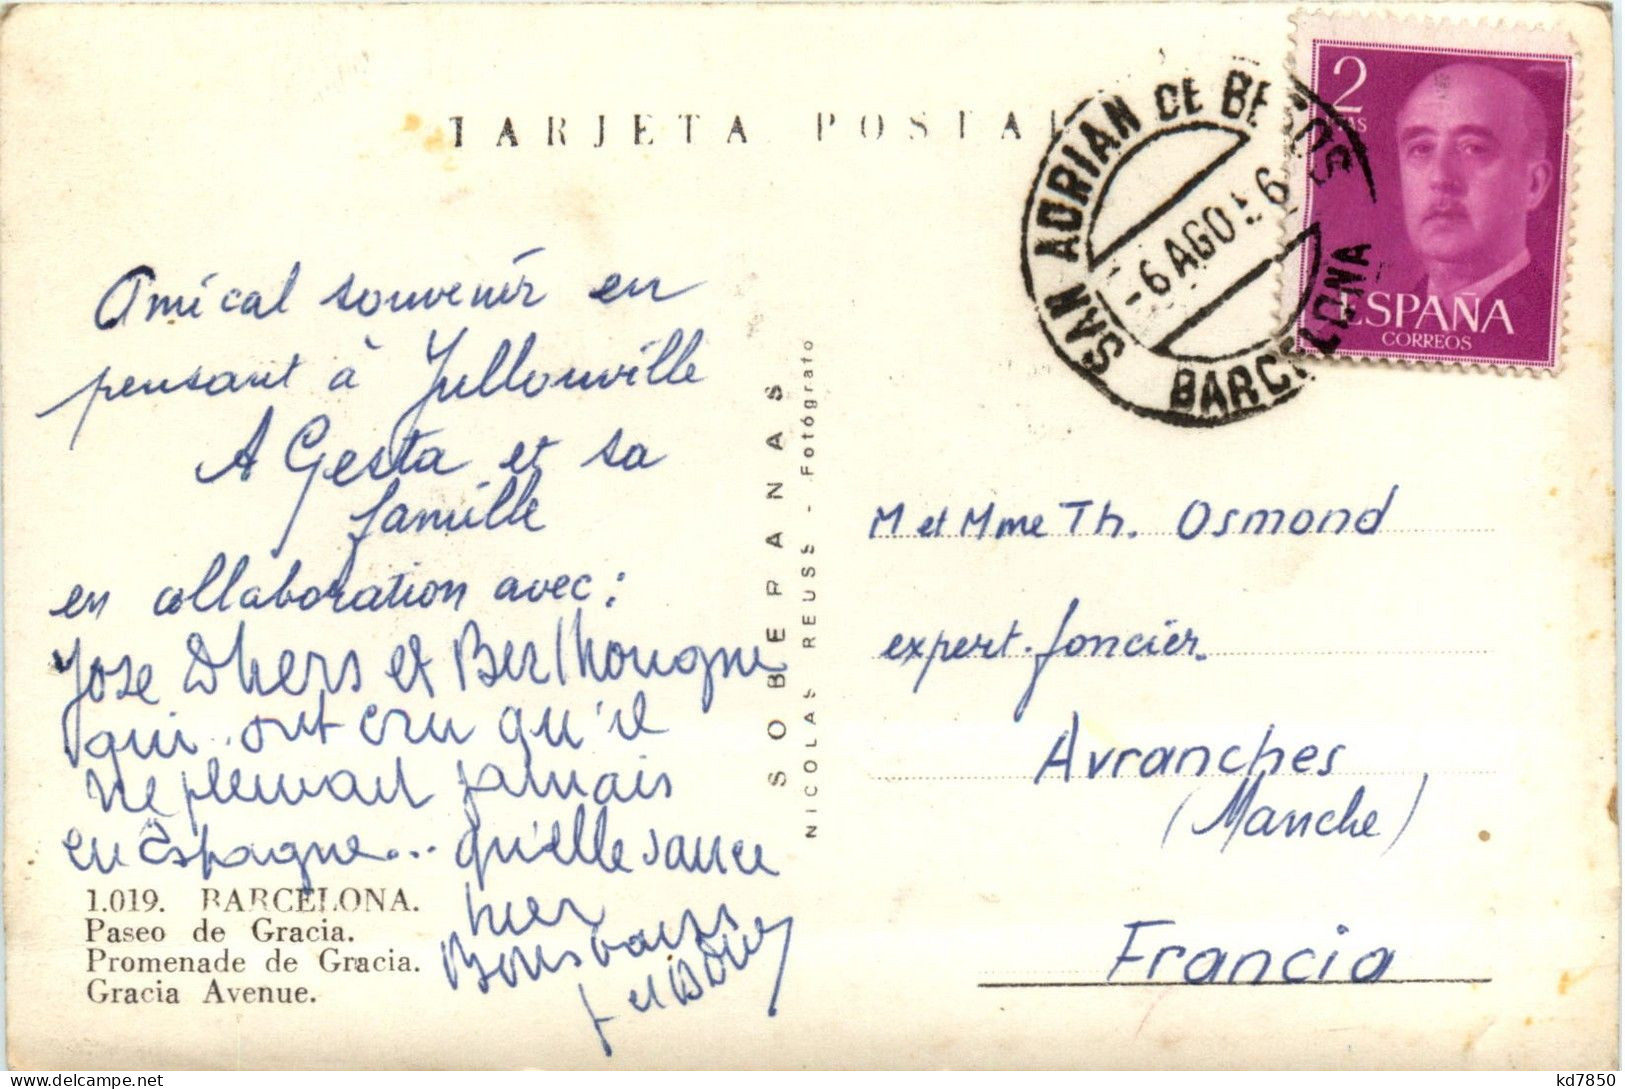 TARJETA POSTAL
SAN ADRIAN DE BESOS
-6 AGO 56
BARCELONA
2
PTAS
ESPAÑA
CORREOS
Amical souvenir en
pensant à Jullouville
A Gesta et sa
famille
en collaboration avec :
Jose Dhers et Berthougne
qui ont cru qu'il
ne pleuvait jamais
en Espagne... qu'elle sauce
hier
Bons baisers
J et B
1.019. BARCELONA.
Paseo de Gracia.
Promenade de Gracia.
Gracia Avenue.
SOBERANAS
NICOLAS REUSS - Fotógrafo
M et Mme Th. Osmond
expert-foncier.
Avranches
(Manche)
Francia
kd7850